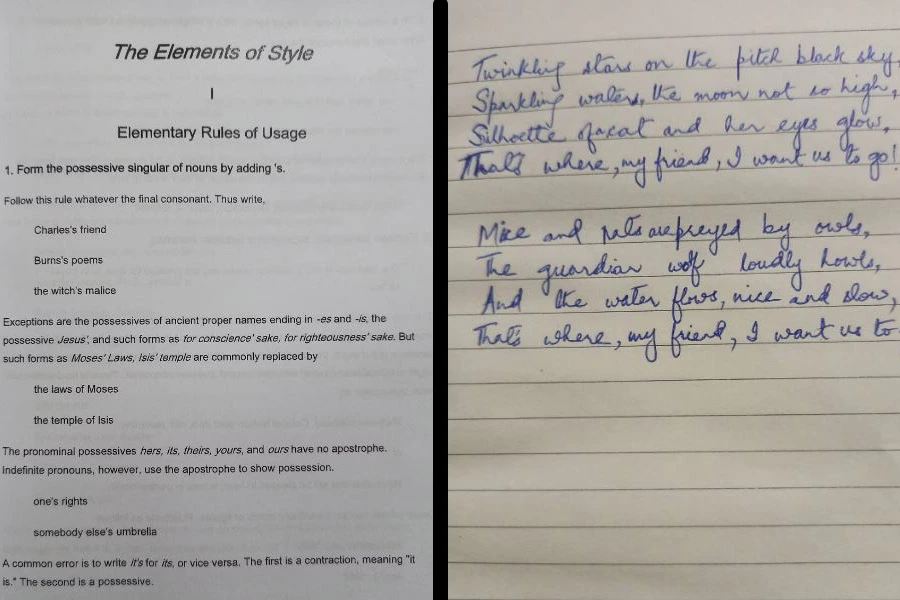 The Elements of Style
I
Elementary Rules of Usage
1. Form the possessive singular of nouns by adding 's.
Follow this rule whatever the final consonant. Thus write,
Charles's friend
Burns's poems
the witch's malice
Exceptions are the possessives of ancient proper names ending in -es and -is, the
possessive Jesus', and such forms as for conscience' sake, for righteousness' sake. But
such forms as Moses' Laws, Isis' temple are commonly replaced by
the laws of Moses
the temple of Isis
The pronominal possessives hers, its, theirs, yours, and ours have no apostrophe.
Indefinite pronouns, however, use the apostrophe to show possession.
one's rights
somebody else's umbrella
A common error is to write it's for its, or vice versa. The first is a contraction, meaning "it
is." The second is a possessive.
Twinkling stars on the pitch black sky,
Sparkling waters, the moon not so high,
Silhoette of a cat and her eyes glow,
That's where, my friend, I want us to go!
Mice and rats are preyed by owls,
The guardian wolf loudly howls,
And the water flows, nice and slow,
That's where, my friend, I want us to